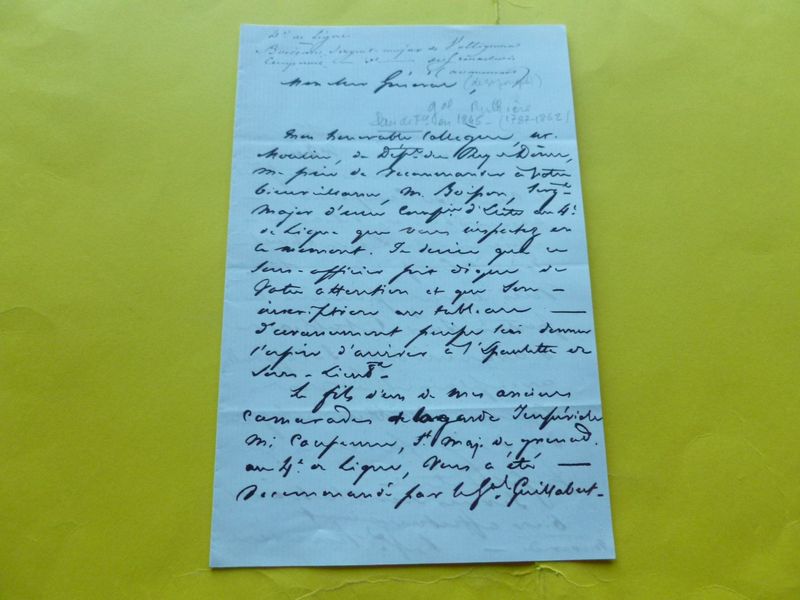 4e de Ligne
Boisson, Sergent-major de Voltigeurs
Compenne
Monsieur Général,
gal Rulhière
en 1865 - (1782-1862)
Mon honorable Collègue, Mr.
Moulin, du Dépt. du Puy de Dôme,
me prie de recommander à Votre
bienveillance, M. Boisson, Sergt.
Major d'une Compie. d'Elite au 4e.
de Ligne que vous inspectez en
ce moment. Je désire que ce
Sous-officier soit digne de
Votre attention et que Son
inscription au tableau
d'avancement puisse lui donner
l'espoir d'arriver à l'Epaulette de
Sous-Lieut.
Le fils d'un de mes anciens
camarades de la garde Impériale
M. Compenne, St. Maj. de grenad.
au 4e. de Ligne, Vous a été
recommandé par le Gal. Guillabert.